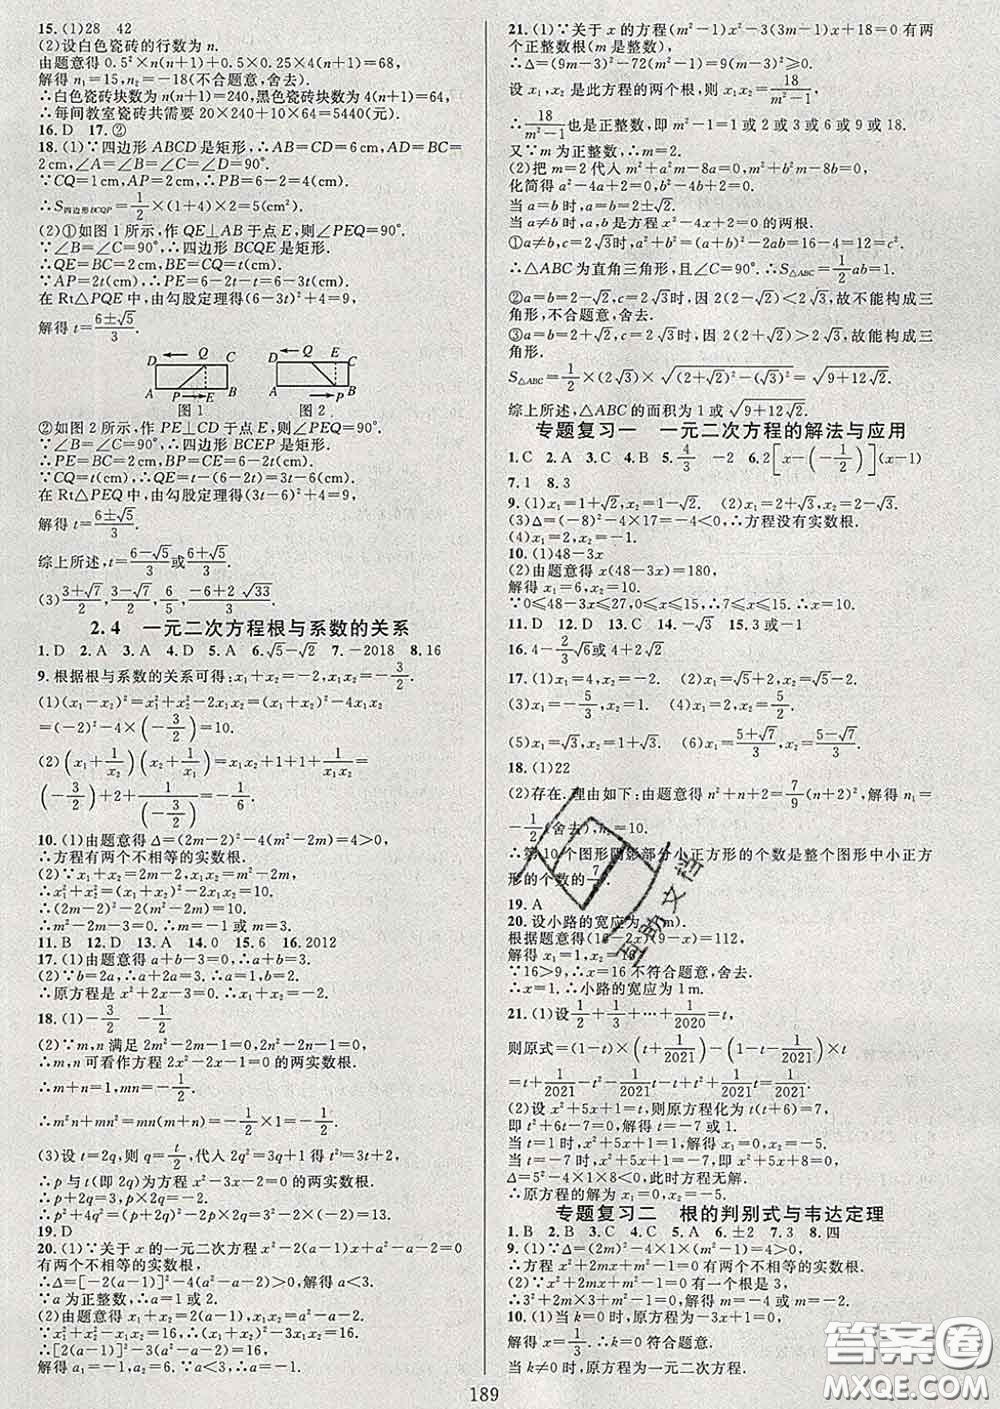 15. (1)28　42
(2)设白色瓷砖的行数为 n.
由题意得 0.5²×n(n+1)+0.5×0.25×4(n+1)=68,
解得 n₁=15,n₂=-18(不合题意,舍去).
∴白色瓷砖块数为 n(n+1)=240,黑色瓷砖块数为 4(n+1)=64,
∴每间教室瓷砖共需要 20×240+10×64=5440(元).
16. D　17. ②
18. (1)∵四边形 ABCD 是矩形,∴AB=CD=6cm,AD=BC=
2cm,∠A=∠B=∠C=∠D=90°.
∵CQ=1cm,AP=2cm,∴PB=6-2=4(cm).
∴S四边形BCQP=1/2×(1+4)×2=5(cm²).
(2)①如图 1 所示,作 QE⊥AB 于点 E,则∠PEQ=90°.
∵∠B=∠C=90°,∴四边形 BCQE 是矩形.
∴QE=BC=2cm,BE=CQ=t(cm).
∵AP=2t(cm),∴PE=6-2t-t=6-3t(cm).
在 Rt△PQE 中,由勾股定理得(6-3t)²+4=9,
解得 t=(6±√5)/3.
D Q C A P E B
图 1
D Q E C A P B
图 2
②如图 2 所示,作 PE⊥CD 于点 E,则∠PEQ=90°.
∵∠B=∠C=90°,∴四边形 BCEP 是矩形.
∴PE=BC=2cm,BP=CE=6-2t(cm).
∵CQ=t,∴QE=t-(6-2t)=3t-6(cm).
在 Rt△PEQ 中,由勾股定理得(3t-6)²+4=9,
解得 t=(6±√5)/3.
综上所述,t=(6-√5)/3或(6+√5)/3.
(3)(3+√7)/2,(3-√7)/2,6/5,(-6+2√33)/2
2.4　一元二次方程根与系数的关系
1. D　2. A　3. A　4. D　5. A　6. √5-√2　7. -2018　8. 16
9. 根据根与系数的关系可得:x₁+x₂=-2,x₁x₂=-3/2.
(1)(x₁-x₂)²=x₁²+x₂²-2x₁x₂=(x₁+x₂)²-4x₁x₂
=(-2)²-4×(-3/2)=10.
(2)(x₁+1/x₂)(x₂+1/x₁)=x₁x₂+1+1+1/(x₁x₂)=
(-3/2)+2+1/(-3/2)=-1/6.
10. (1)由题意得 Δ=(2m-2)²-4(m²-2m)=4>0,
∴方程有两个不相等的实数根.
(2)∵x₁+x₂=2m-2,x₁x₂=m²-2m,
∴x₁²+x₂²=(x₁+x₂)²-2x₁x₂=10.
∴(2m-2)²-2(m²-2m)=10.
∴m²-2m-3=0.∴m=-1 或 m=3.
11. B　12. D　13. A　14. 0　15. 6　16. 2012
17. (1)由题意得 a+b-3=0,∴b=-a+3.
(2)∵x₁+x₂=-a=-1,∴a=1,b=-a+3=2.
∴原方程是 x²+x-2=0.∴x₁=1,x₂=-2.
18. (1)-3/2　-1/2
(2)∵m,n 满足 2m²-2m-1=0,2n²-2n-1=0,
∴m,n 可看作方程 2x²-2x-1=0 的两实数根.
∴m+n=1,mn=-1/2.
∴m²n+mn²=mn(m+n)=-1/2×1=-1/2.
(3)设 t=2q,则 q=t/2,代入 2q²=3q+1,得 t²=3t+2,
∴p 与 t(即 2q)为方程 x²-3x-2=0 的两实数根.
∴p+2q=3,p×2q=-2.
∴p²+4q²=(p+2q)²-2p×2q=3²-2×(-2)=13.
19. D
20. (1)∵关于 x 的一元二次方程 x²-2(a-1)x+a²-a-2=0
有两个不相等的实数根,
∴Δ=[-2(a-1)]²-4(a²-a-2)>0,解得 a<3.
∵a 为正整数,∴a=1 或 2.
(2)由题意得 x₁+x₂=2(a-1),x₁x₂=a²-a-2.
∵x₁²+x₂²-x₁x₂=16,∴(x₁+x₂)²-3x₁x₂=16.
∴[2(a-1)]²-3(a²-a-2)=16.
解得 a₁=-1,a₂=6.∵a<3,∴a=-1.
21. (1)∵关于 x 的方程(m²-1)x²-3(3m-1)x+18=0 有两
个正整数根(m 是整数),
∴Δ=(9m-3)²-72(m²-1)=9(m-3)².
设 x₁,x₂ 是此方程的两个根,则 x₁x₂=18/(m²-1),
∴18/(m²-1)也是正整数,即 m²-1=1 或 2 或 3 或 6 或 9 或 18.
又∵m 为正整数,∴m=2.
(2)把 m=2 代入 m²+a²m-8a=0,m²+b²m-8b=0,
化简得 a²-4a+2=0,b²-4b+2=0.
当 a=b 时,a=b=2±√2.
当 a≠b 时,a,b 是方程 x²-4x+2=0 的两根.
①a≠b,c=2√3时,a²+b²=(a+b)²-2ab=16-4=12=c².
∴△ABC 为直角三角形,且∠C=90°.∴S△ABC=1/2ab=1.
②a=b=2-√2,c=2√3时,因 2(2-√2)<2√3,故不能构成三
角形,不合题意,舍去.
③a=b=2+√2,c=2√3时,因 2(2+√2)>2√3,故能构成三
角形.
S△ABC=1/2×(2√3)×√((2+√2)²-(√3)²)=√(9+12√2).
综上所述,△ABC 的面积为 1 或√(9+12√2).
专题复习一　一元二次方程的解法与应用
1. C　2. A　3. C　4. B　5. 4/3　-2　6. 2[x-(-1/2)](x-1)
7. 1　8. 3
9. (1)x₁=1+√2,x₂=1-√2.　(2)x₁=0,x₂=2.
(3)Δ=(-8)²-4×17=-4<0,∴方程没有实数根.
(4)x₁=2,x₂=-1.
10. (1)48-3x
(2)由题意得 x(48-3x)=180,
解得 x₁=6,x₂=10.
∵0≤48-3x≤27,0≤x≤15,∴7≤x≤15.∴x=10.
11. D　12. D　13. C　14. -√3　15. 3或-1
16. 4-2/3√6或4+2/3√6
17. (1)x₁=4,x₂=-2.　(2)x₁=√5+2,x₂=√5-2.
(3)x₁=-5/3,x₂=1.　(4)x₁=-1/3,x₂=2.
(5)x₁=√3,x₂=1+√3.　(6)x₁=(5+√7)/3,x₂=(5-√7)/3.
18. (1)22
(2)存在.理由如下:由题意得 n²+n+2=7/9(n+2)²,解得 n₁=
-1/2(舍去),n₂=10.
∴第 10 个图形阴影部分小正方形的个数是整个图形中小正方
形的个数的7/9.
19. A
20. 设小路的宽应为 x m.
根据题意得(16-2x)(9-x)=112,
解得 x₁=1,x₂=16.
∵16>9,∴x=16 不符合题意,舍去.
∴x=1.∴小路的宽应为 1m.
21. (1)设1/2+1/3+…+1/2020=t,
则原式=(1-t)×(t+1/2021)-(1-t-1/2021)×t
=t+1/2021-t²-1/2021t-t+t²+1/2021t=1/2021.
(2)设 x²+5x+1=t,则原方程化为 t(t+6)=7,
即 t²+6t-7=0,解得 t=-7 或 1.
当 t=1 时,x²+5x+1=1,解得 x₁=0,x₂=-5.
当 t=-7 时,x²+5x+1=-7,x²+5x+8=0,
Δ=5²-4×1×8<0,此时方程无解.
∴原方程的解为 x₁=0,x₂=-5.
专题复习二　根的判别式与韦达定理
1. B　2. B　3. C　4. C　5. A　6. ±2　7. 3　8. 四
9. (1)∵Δ=(2m)²-4×1×(m²-1)=4>0,
∴方程 x²+2mx+m²-1=0 有两个不相等的实数根.
(2)∵x²+2mx+m²-1=0 有一个根是 3,
∴3²+2m×3+m²-1=0,解得 m=-4 或 m=-2.
10. (1)当 k=0 时,原方程为-3x+1=0,
解得 x=1/3.∴k=0 符合题意.
当 k≠0 时,原方程为一元二次方程.
189
答案圈
MXQE.COM